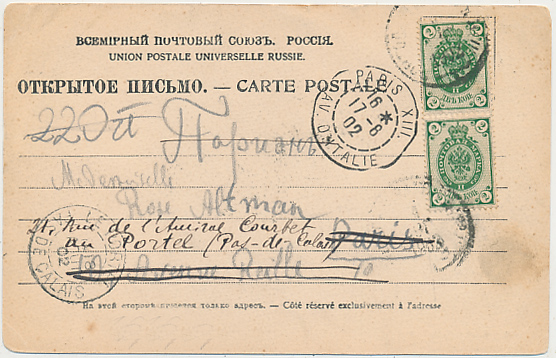 ВСЕМІРНЫЙ ПОЧТОВЫЙ СОЮЗЪ. РОССІЯ.
UNION POSTALE UNIVERSELLE RUSSIE.
ОТКРЫТОЕ ПИСЬМО. — CARTE POSTALE
2
2
ДВѢ КОП.
2
2
PARIS XIII
16
17-8
02
AV. D'ITALIE
Парижъ
Mademoiselle
Rose Altman
21, Rue de l'Amiral Courbet
au Portel (Pas-de-Calais)
Paris
Avenue
LE PORTEL
02
PAS DE CALAIS
На этой сторонѣ пишется только адресъ. — Côté réservé exclusivement à l'adresse